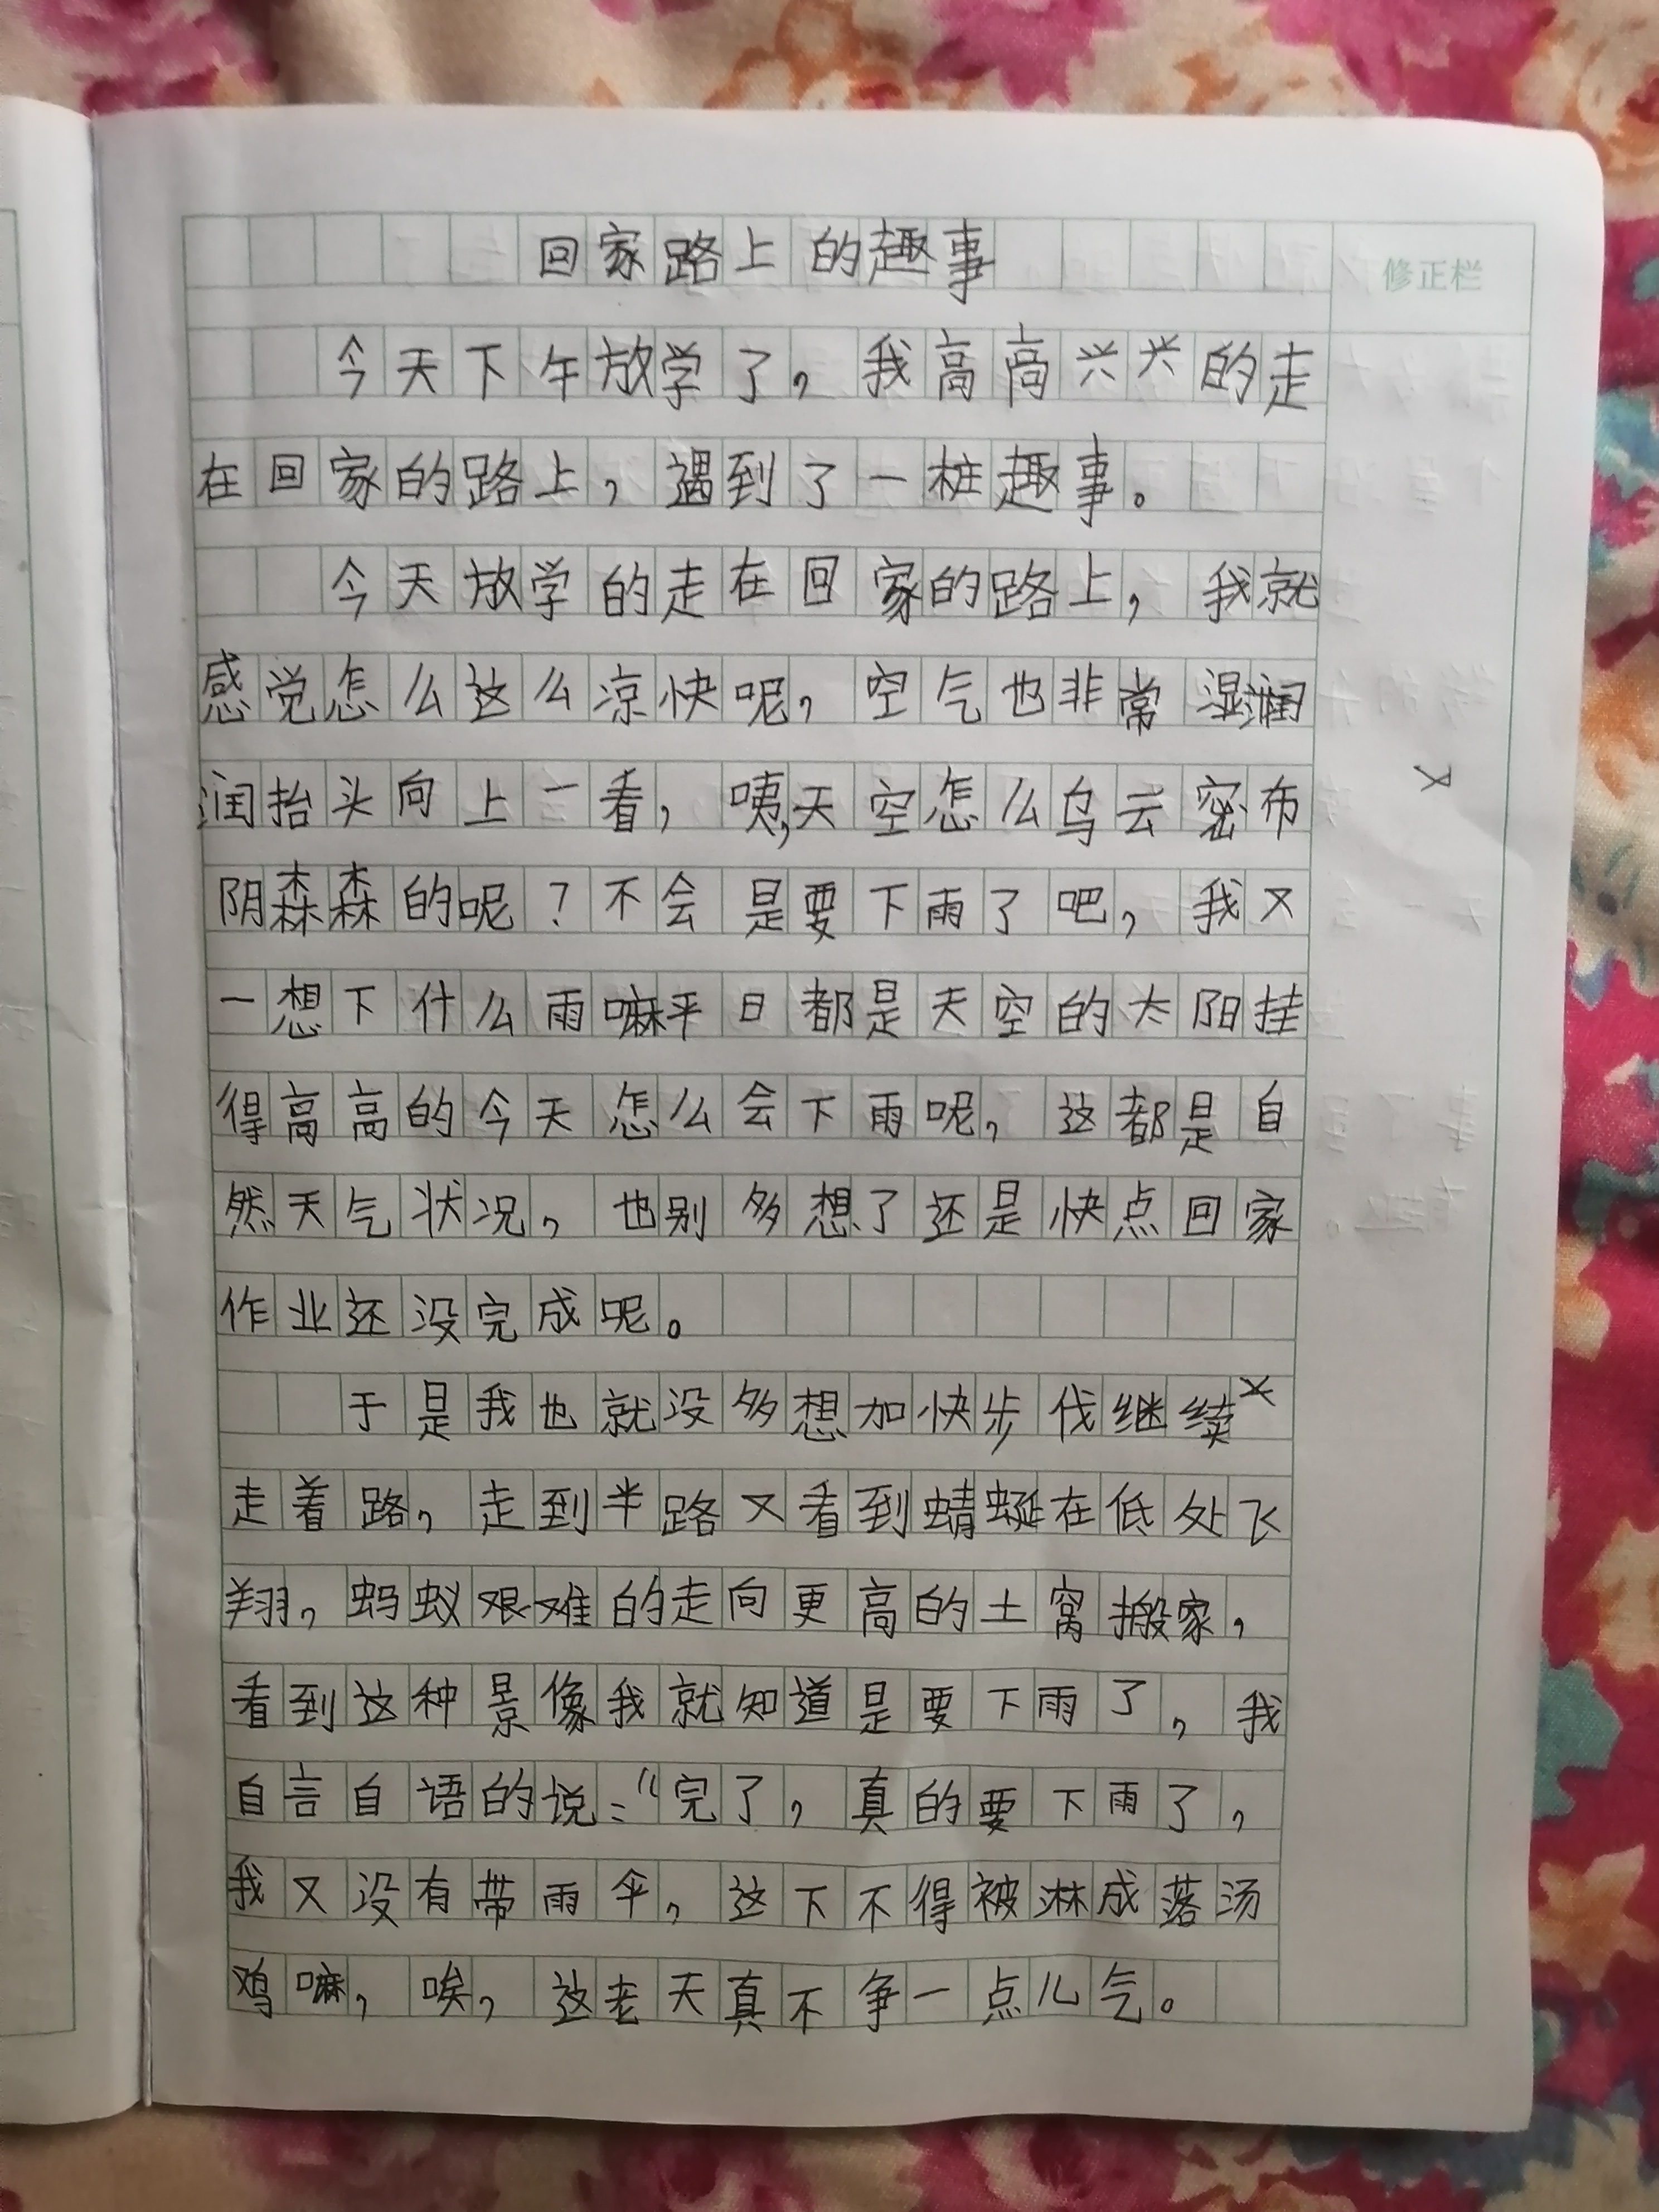 回家路上的趣事
修正栏
今天下午放学了，我高高兴兴的走
在回家的路上，遇到了一桩趣事。
今天放学的走在回家的路上，我就
感觉怎么这么凉快呢，空气也非常湿润
润抬头向上一看，咦，天空怎么乌云密布
阴森森的呢？不会是要下雨了吧，我又
一想下什么雨嘛平日都是天空的太阳挂
得高高的今天怎么会下雨呢，这都是自
然天气状况，也别多想了还是快点回家
作业还没完成呢。
于是我也就没多想加快步伐继续
走着路，走到半路又看到蜻蜓在低处飞
翔，蚂蚁艰难的走向更高的土窝搬家，
看到这种景像我就知道是要下雨了，我
自言自语的说：“完了，真的要下雨了，
我又没有带雨伞，这下不得被淋成落汤
鸡嘛，唉，这老天真不争一点儿气。